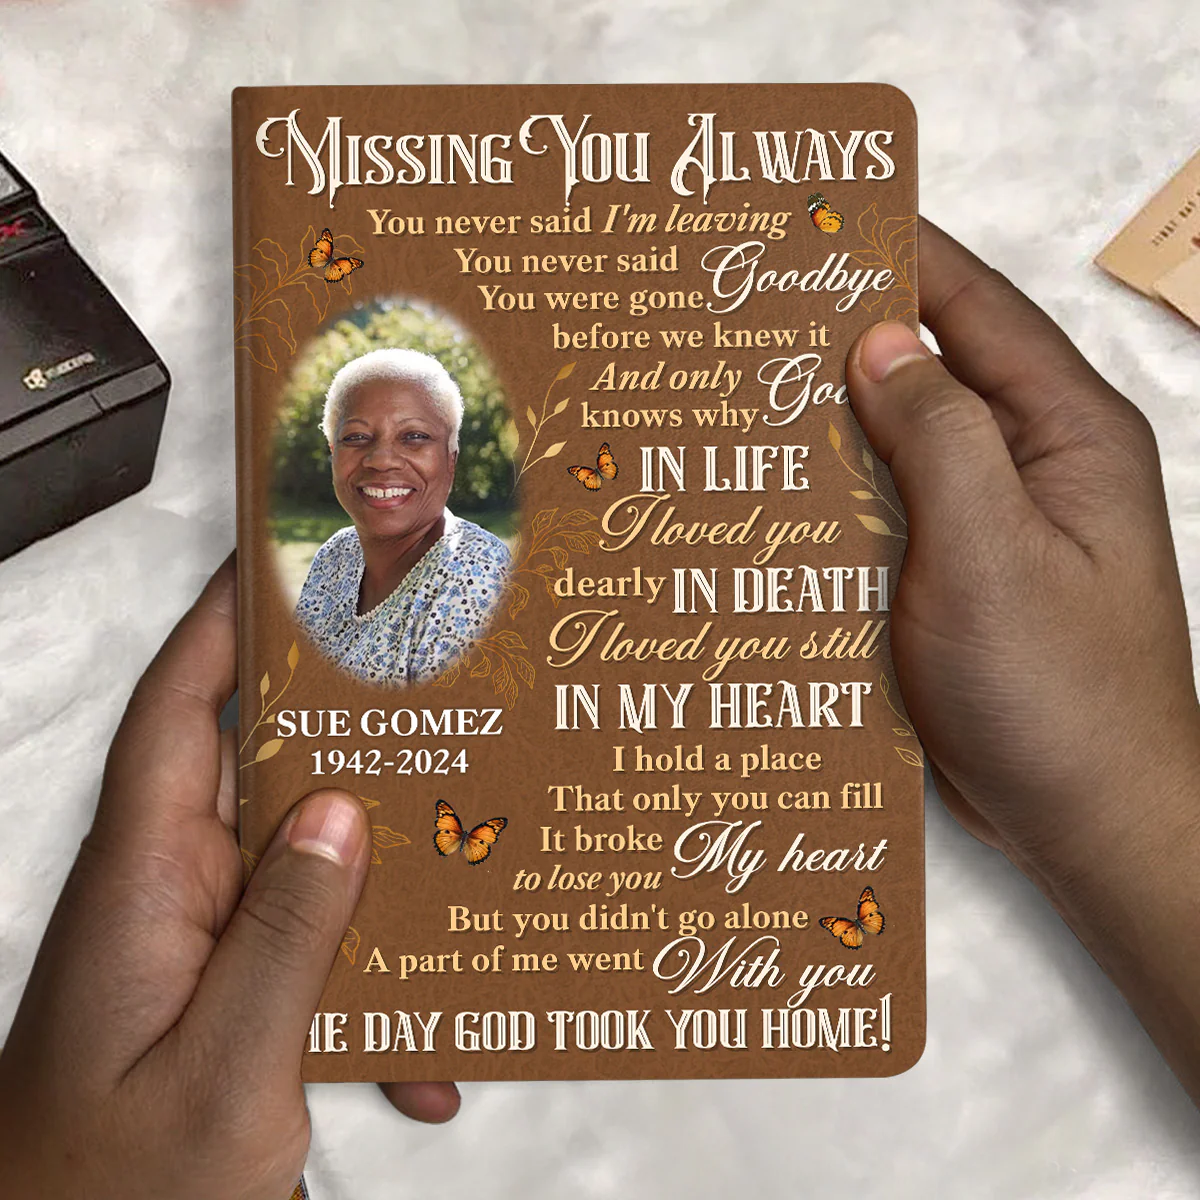 Missing You Always
You never said I'm leaving
You never said Goodbye
You were gone.
before we knew it
And only
knows why
IN LIFE
I loved you
dearly IN DEATH
I loved you still
IN MY HEART
I hold a place
That only you can fill
It broke My heart
to lose you
But you didn't go alone
A part of me went With you
DAY GOD TOOK YOU HOME!
SUE GOMEZ
1942-2024